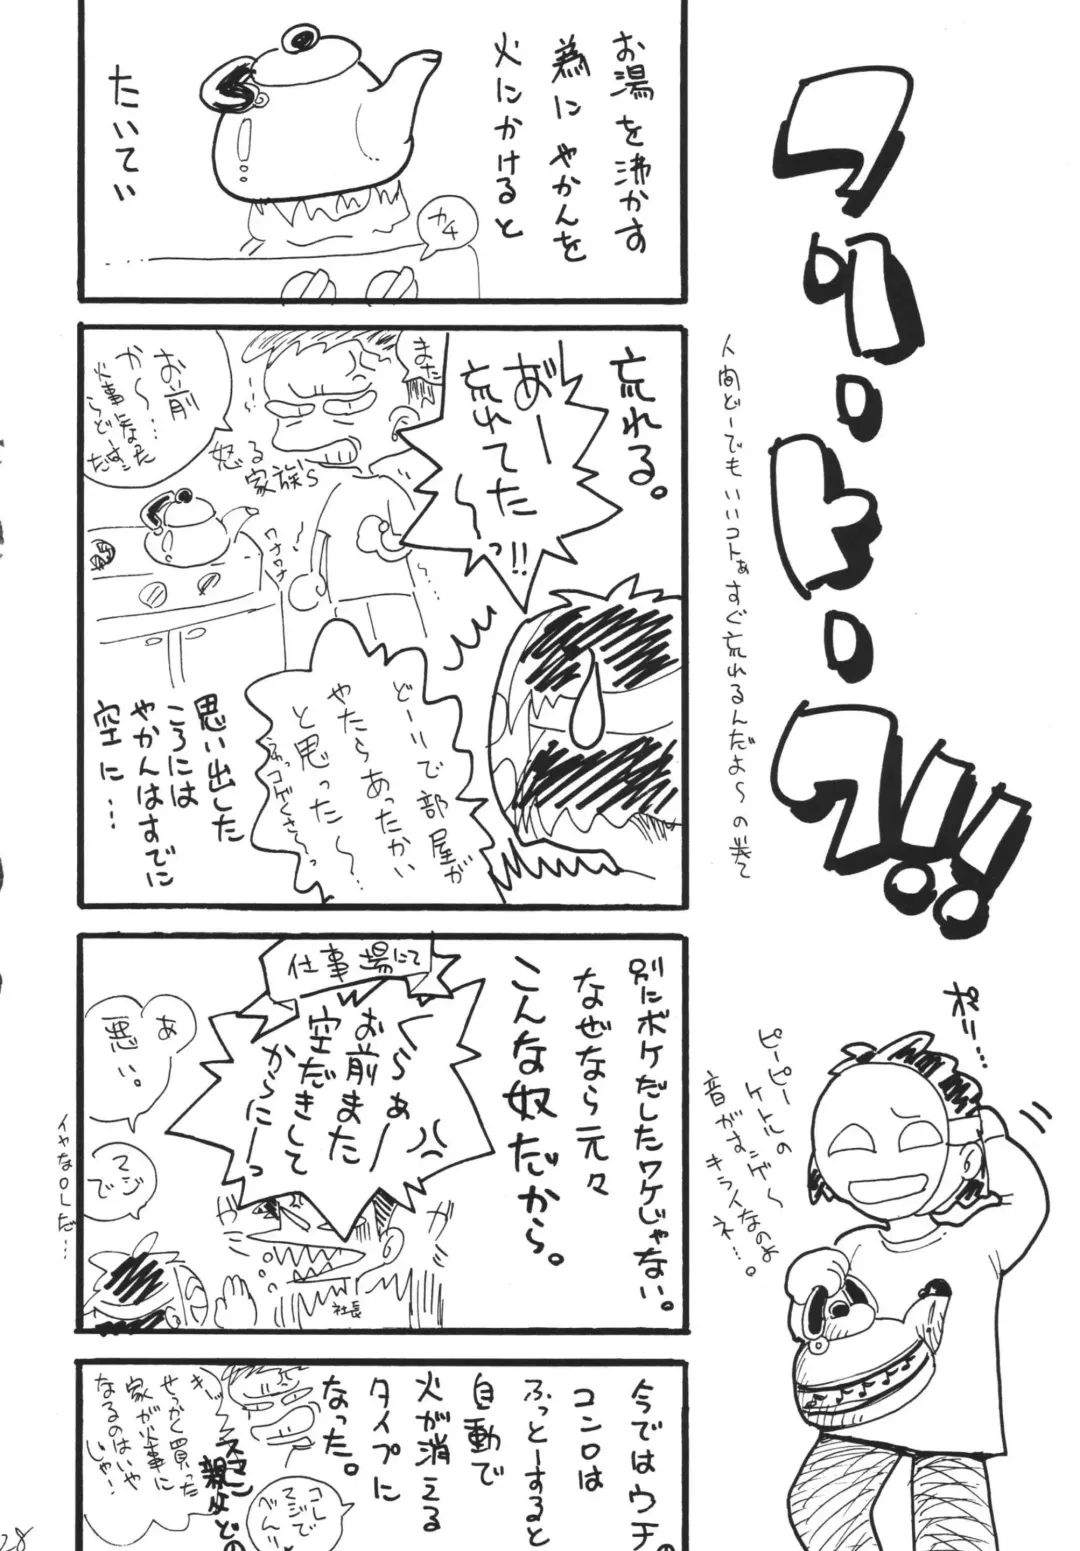 フリートーク!!
人間どーでもいいコトぁすぐ忘れるんだよ〜の巻て
ポリ…
ピーピー
ケトルの
音がすンゲ〜
キライなのよ
ネ…。
お湯を沸かす
為にやかんを
火にかけると
たいてい
カチ
忘れる。
あ゛ー
忘れてた
〜っ!!
また
お前
か〜…
火事になった
らどーす
だ
怒る
家族's
ワナワナ
どーりで部屋が
やたらあったかい
と思った〜…
思い出した
ころには
やかんはすでに
空に…
別にボケだしたワケじゃない。
なぜなら元々
こんな奴だから。
仕事場にて
くらぁー
お前また
空だきして
からにーっ
ガミ
ガミ
社長
あ
悪い。
マジ
で
イヤなOLだ…
今ではウチの
コンロは
ふっとーすると
自動で
火が消える
タイプに
なった。
コレ
マジで
べんり
せっかく買った
家が火事に
なるのはいや
じゃ!
28